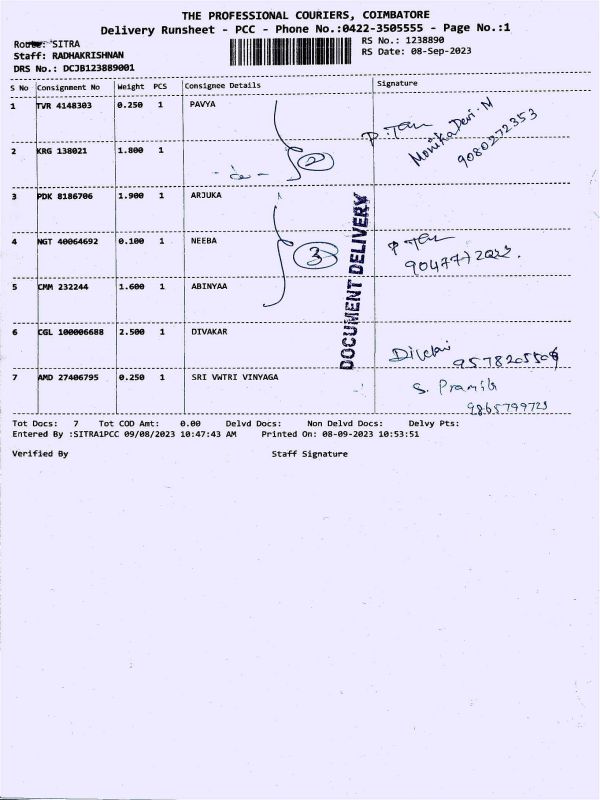 THE PROFESSIONAL COURIERS, COIMBATORE
Delivery Runsheet - PCC - Phone No.:0422-3505555 - Page No.:1
Route: SITRA
RS No.: 1238890
Staff: RADHAKRISHNAN
RS Date: 08-Sep-2023
DRS No.: DCJB123889001
S No Consignment No Weight PCS Consignee Details Signature
1 TVR 4148303 0.250 1 PAVYA
Monika Devi. M
9080272353
2 KRG 138021 1.800 1
2
3 PDK 8186706 1.900 1 ARJUKA
DOCUMENT DELIVERY
4 NGT 40064692 0.100 1 NEEBA
3
5 CMM 232244 1.600 1 ABINYAA
6 CGL 100006688 2.500 1 DIVAKAR
7 AMD 27406795 0.250 1 SRI VWTRI VINYAGA
9865799723
Tot Docs: 7 Tot COD Amt: 0.00 Delvd Docs: Non Delvd Docs: Delvy Pts:
Entered By :SITRA1PCC 09/08/2023 10:47:43 AM Printed On: 08-09-2023 10:53:51
Verified By Staff Signature